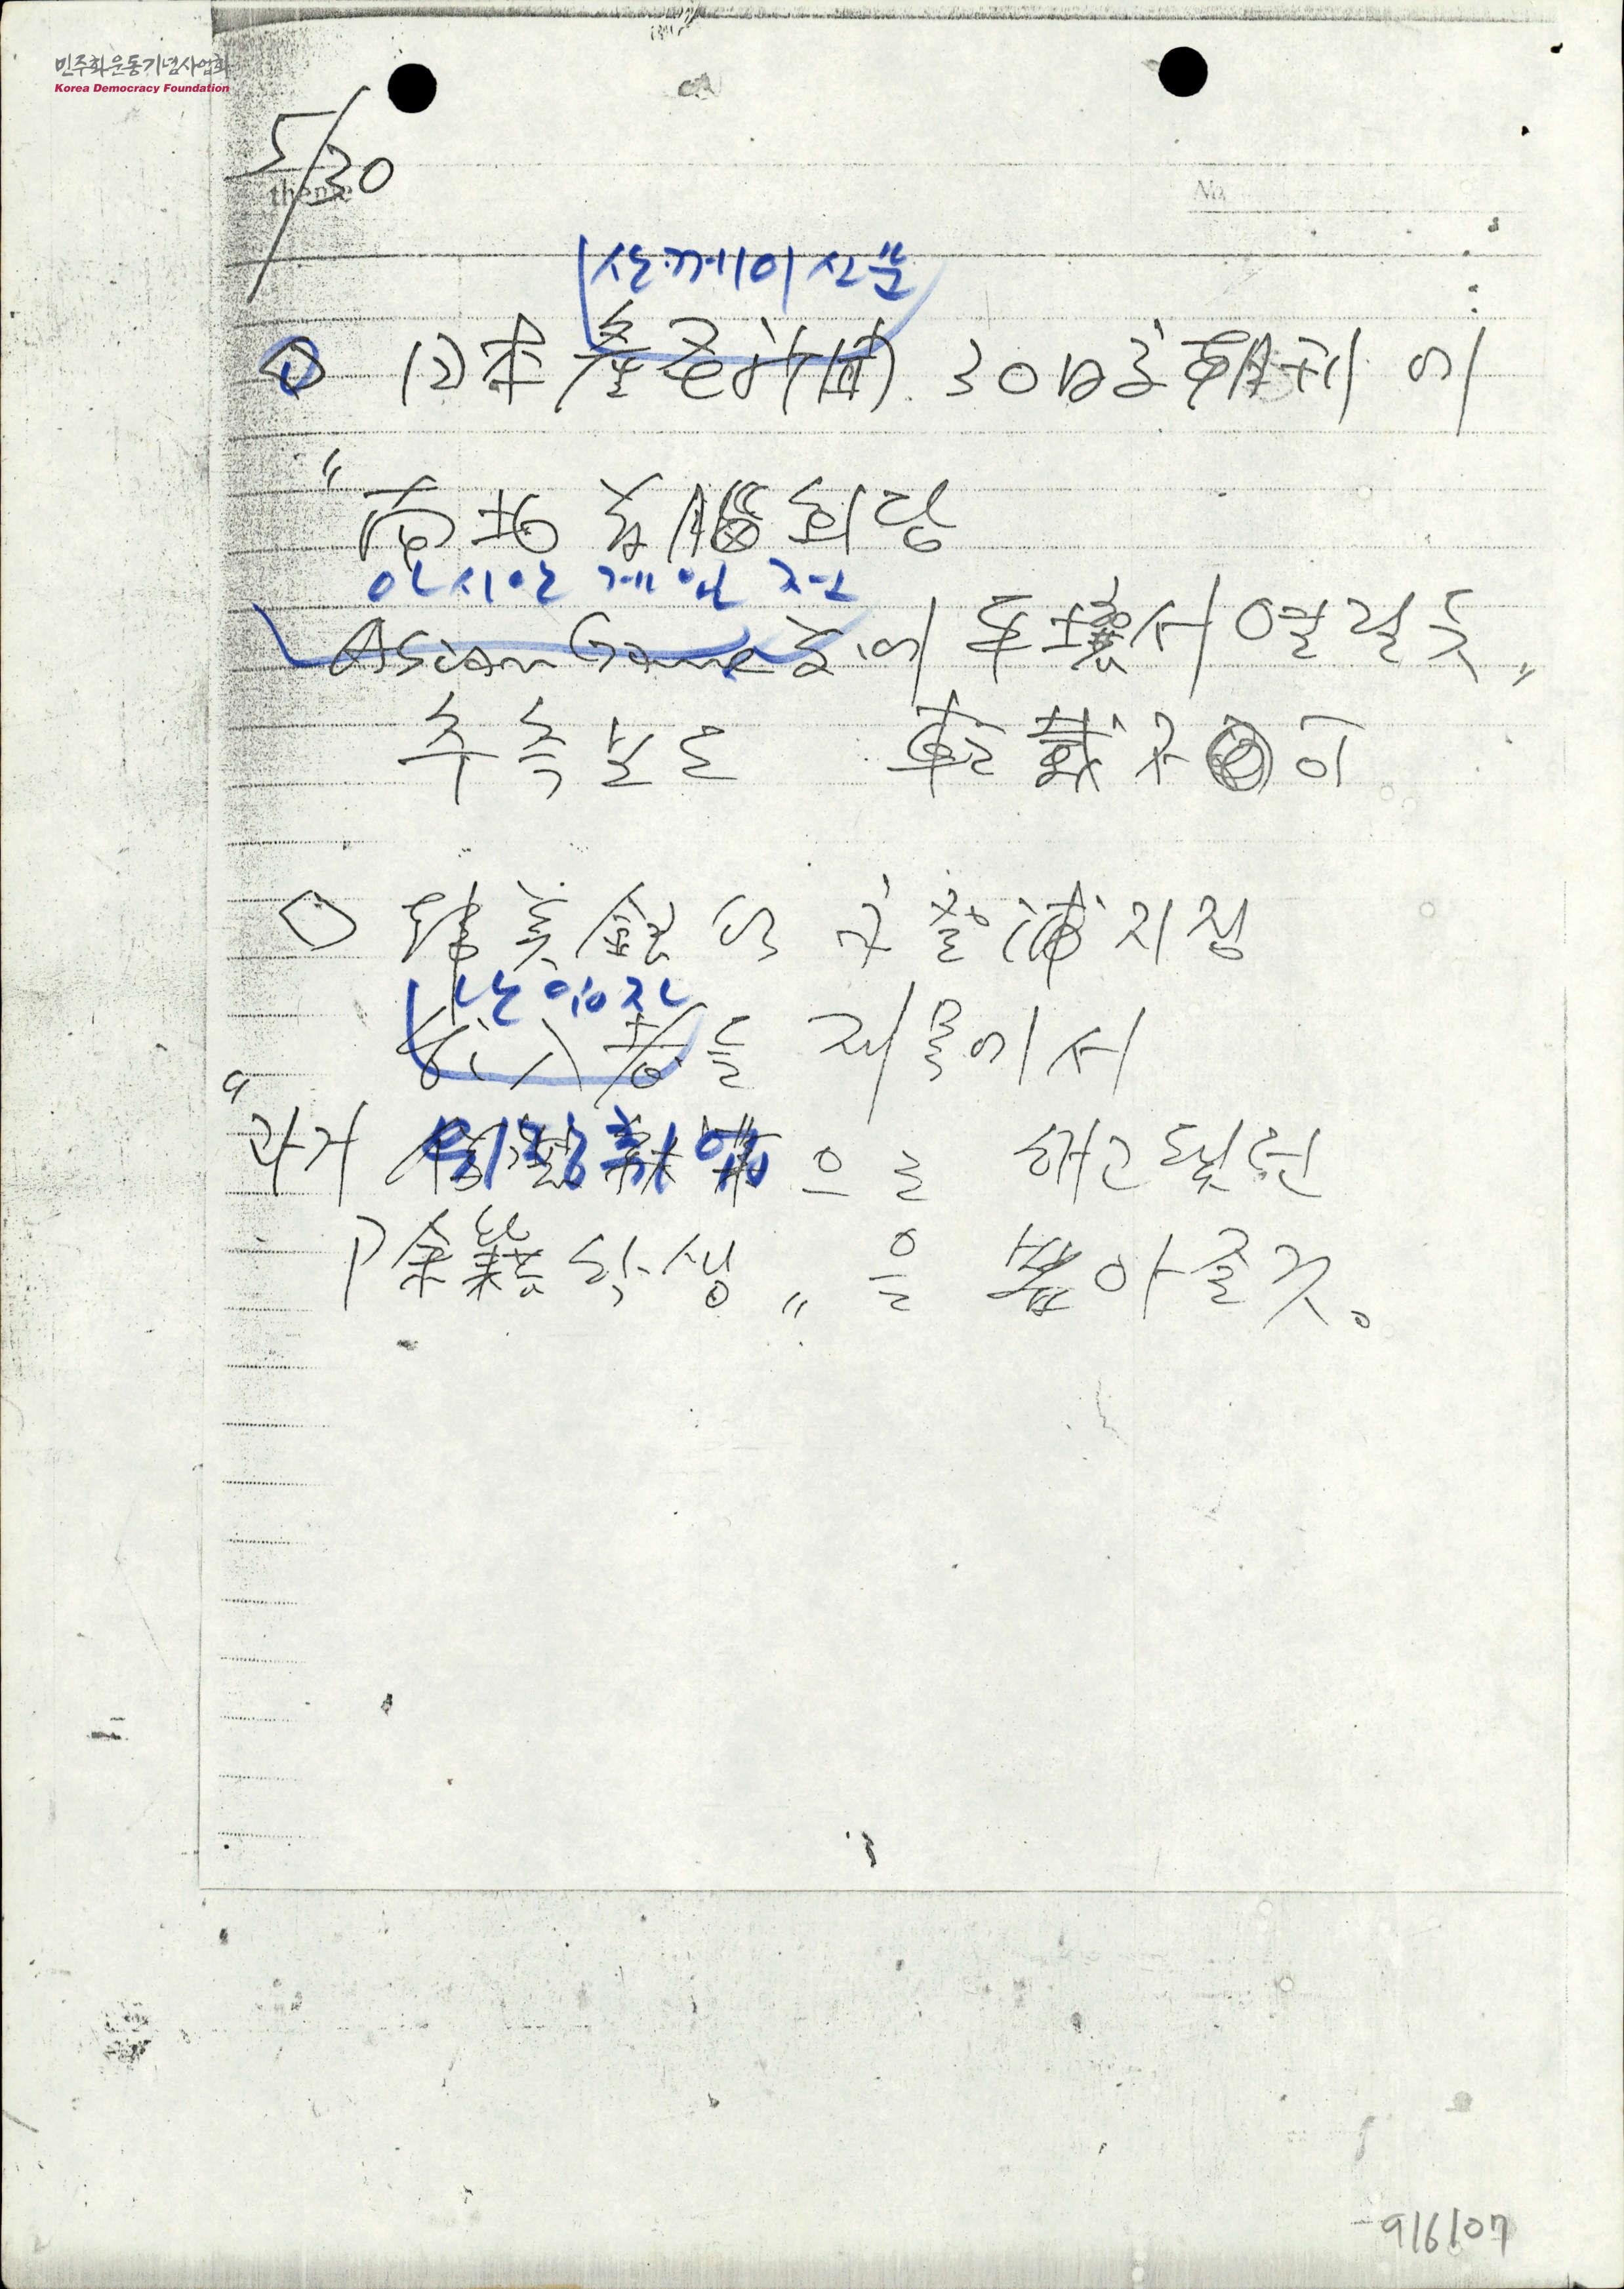 민주화운동기념사업회
Korea Democracy Foundation
5/30
theme
No.
산께이신문
◇ 日本 産経新聞 30日字 朝刊이
"南北首腦회담
아시안게임 전
Asian Game 前에 平壤서 열릴 듯"
추측보도 轉載 不可
◇ 韓美銀行 永登浦지점
난입자
亂入者들 제목에서
"과거 위장취업으로 해고됐던
除籍학생"을 뽑아줄 것.
916107